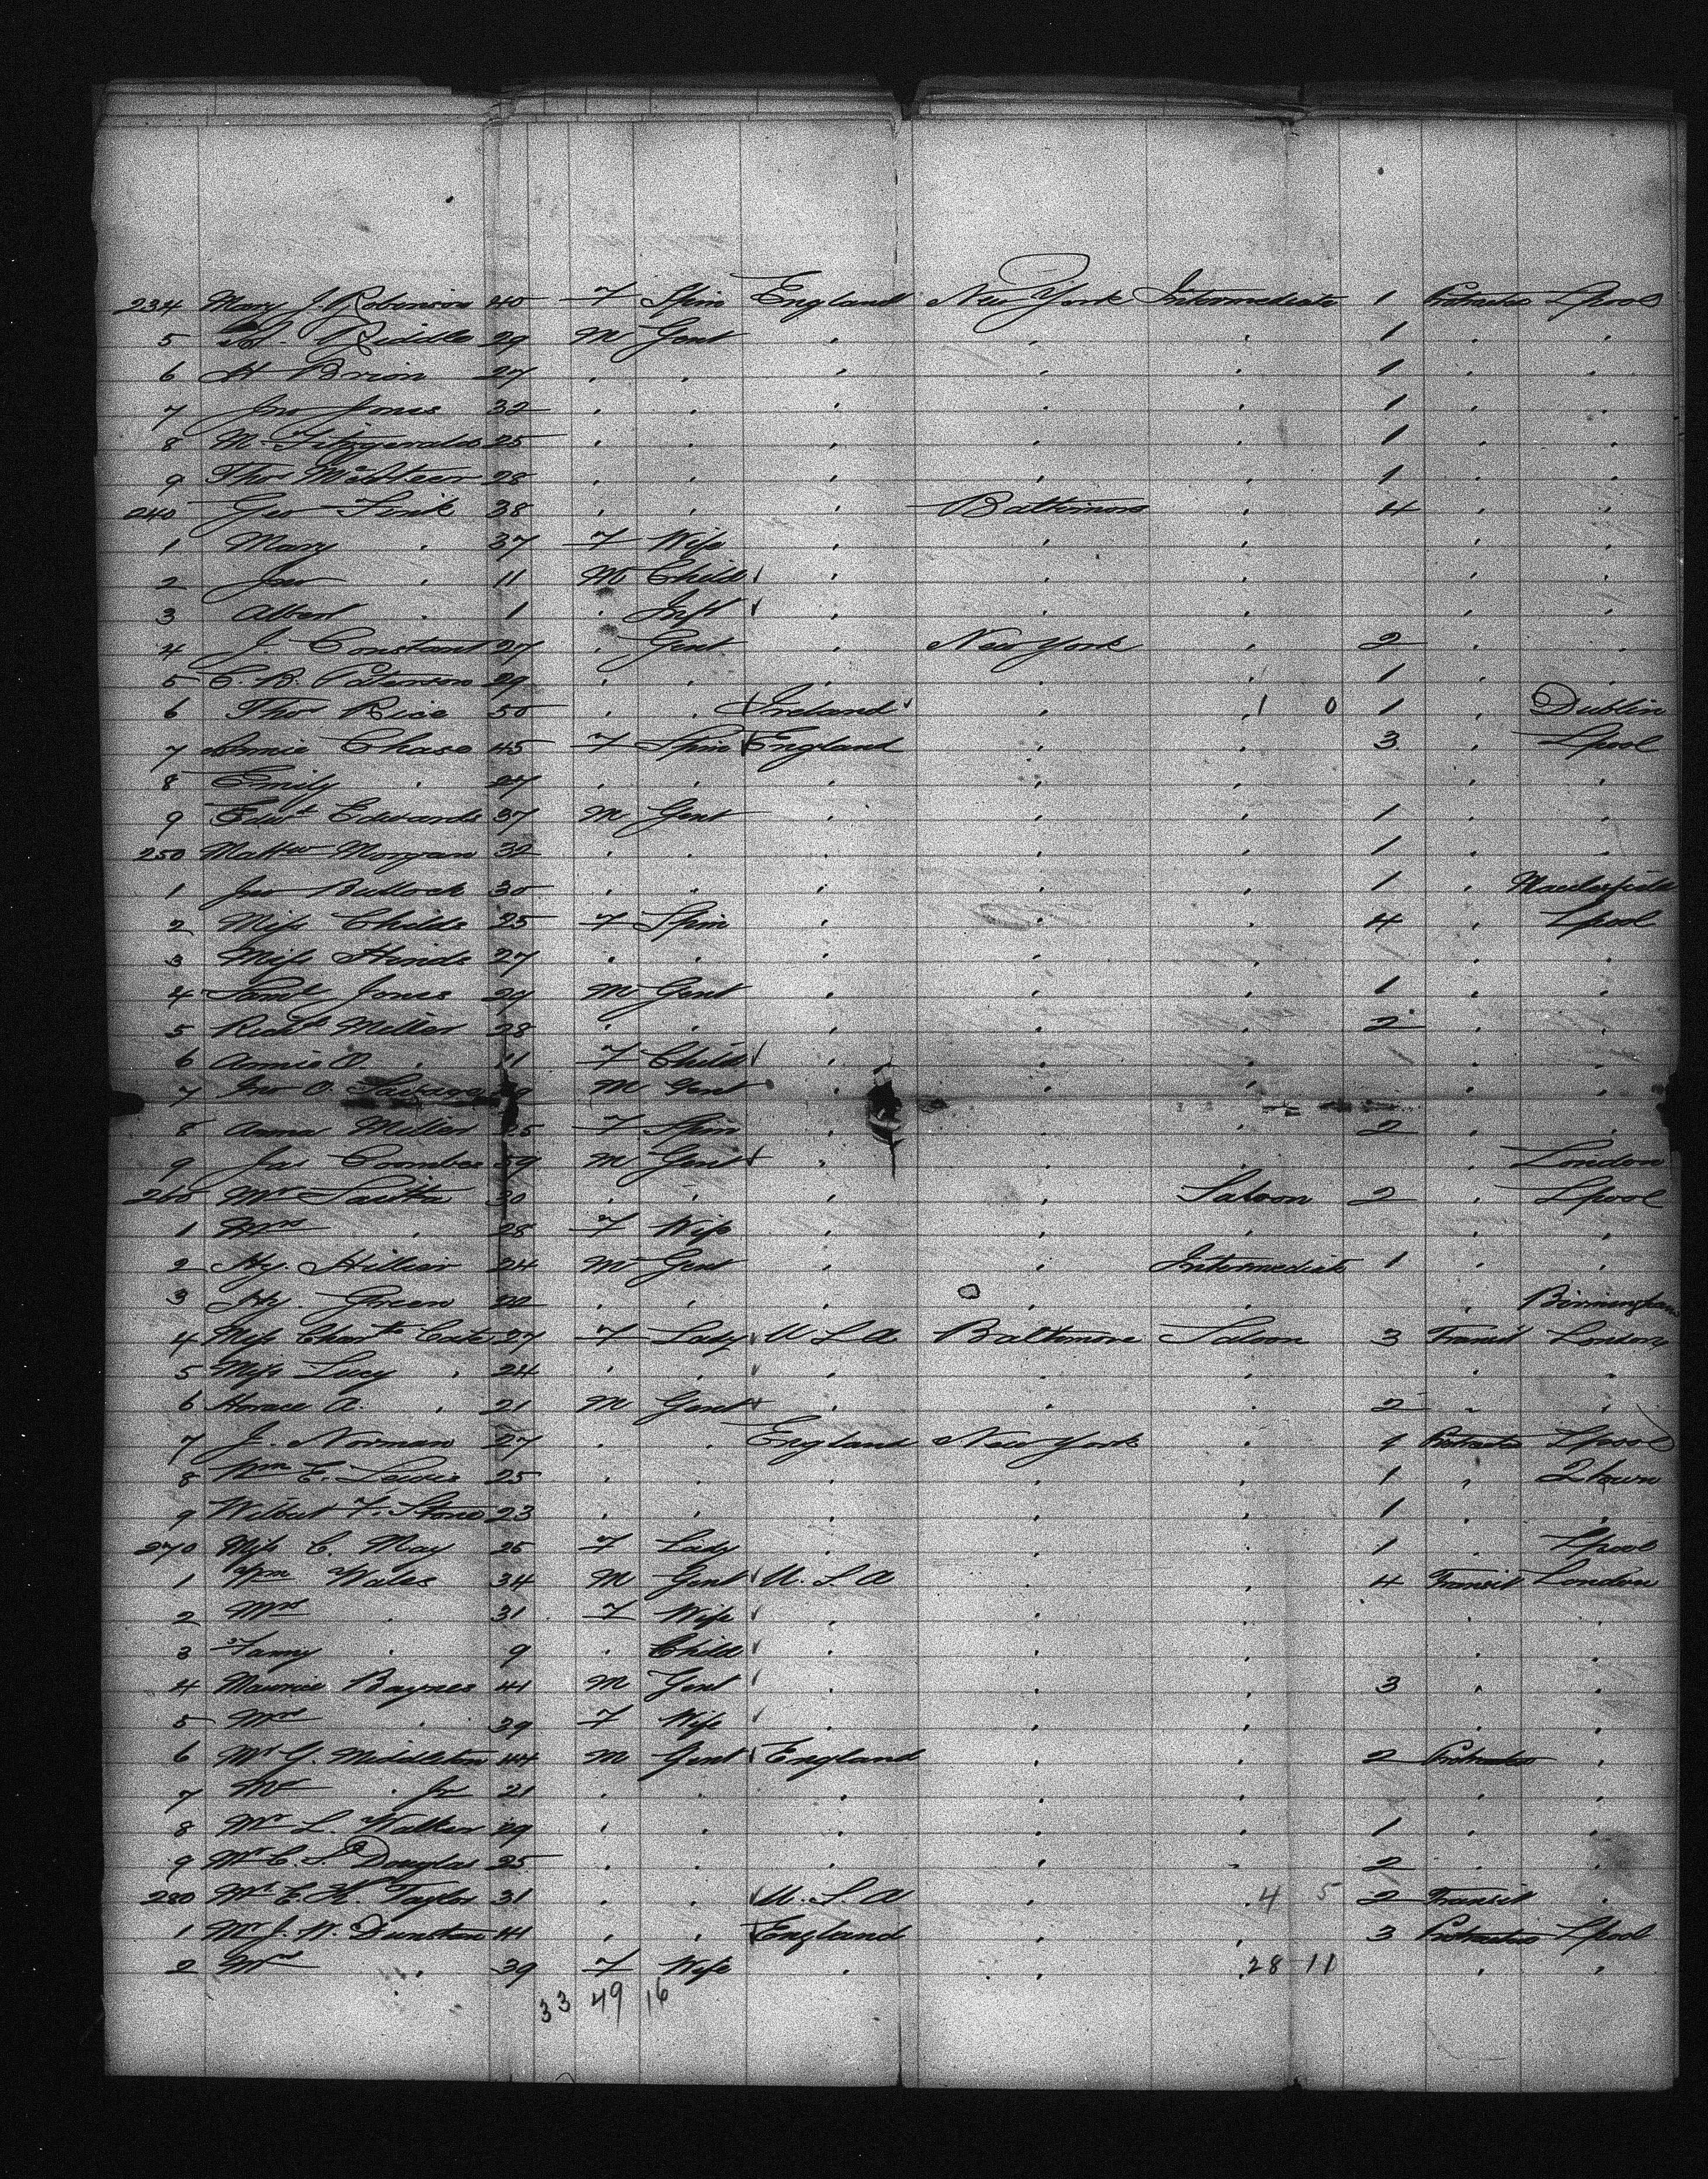 234 Mary J. Robinson 40 F Spin England New York Intermediate 1 Protracted Lpool
5 Riddle 29 M Gent " " " 1 " "
6 H Brion 27 " " " " " 1 " "
7 Jno Jones 32 " " " " " 1 " "
8 M Fitzgerald 25 " " " " " 1 " "
9 Thos 28 " " " " " 1 " "
240 Geo Fink 38 " " " Baltimore " 4 " "
1 Mary " 37 F Wife " " " " "
2 Jno " 11 M Child " " " " "
3 Albert " 1 " Inft " " " " "
4 J. Constant 27 " Gent " New York " 2 " "
5 C. B. Paterson 29 " " " " " 1 " "
6 Thos Rice 50 " " Ireland " " 1 0 1 " Dublin
7 Annie Chase 45 F Spin England " " 3 " Lpool
8 Emily " 27 " " " " " " "
9 Edwd Edwards 37 M Gent " " " 1 " "
250 Mattw Morgan 32 " " " " " 1 " "
1 Jno Bullock 30 " " " " " 1 " Macclesfield
2 Miss Childs 25 F Spin " " " 4 " Lpool
3 Miss Hinds 27 " " " " " " "
4 Saml Jones 29 M Gent " " " 1 " "
5 Richd Miller 28 " " " " " 2 " "
6 Annie O. " 11 F Child " " " " "
7 Jno O. M Gent " " " " "
8 Anna Miller F Spin " " " 2 " "
9 Jas Coombes 59 M Gent " " " " London
260 Mr 30 " " " " Saloon 2 " Lpool
1 Mrs " 28 F Wife " " " " "
2 Hy. Hillier 24 M Gent " " Intermediate 1 " "
3 Hy. Green 22 " " " " " " Birmingham
4 Miss Chartte Cate 27 F Lady U S A Baltimore Saloon 3 Transit London
5 Miss Lucy " 24 " " " " " " "
6 Horace A. " 21 M Gent " " " 2 " "
7 J. Norman 27 " " England New York " 1 Protracted Lpool
8 Wm E. Lewis 25 " " " " " 1 " Qtown
9 Wilbut F. Stone 23 " " " " " 1 " "
270 Miss C. May 25 F Lady " " " 1 " Lpool
1 Wm Wales 34 M Gent U. S. A " " 4 Transit London
2 Mrs " 31 F Wife " " " " "
3 Fanny " 9 " Child " " " " "
4 Maurice Baynes 41 M Gent " " " 3 " "
5 Mrs " 39 F Wife " " " " "
6 Mr G. Middleton 44 M Gent England " " 2 Protracted "
7 Mr " Jr 21 " " " " " " "
8 Mr L. Walker 29 " " " " " 1 " "
9 Mr C. S. Douglas 25 " " " " " 2 " "
280 Mr E. H. Taylor 31 " " U. S. A " " 4 5 2 Transit "
1 Mr J. W. Dunstan 41 " " England " " 3 Protracted Lpool
2 Mrs " 39 F Wife " " " 28 11 " "
33 49 16